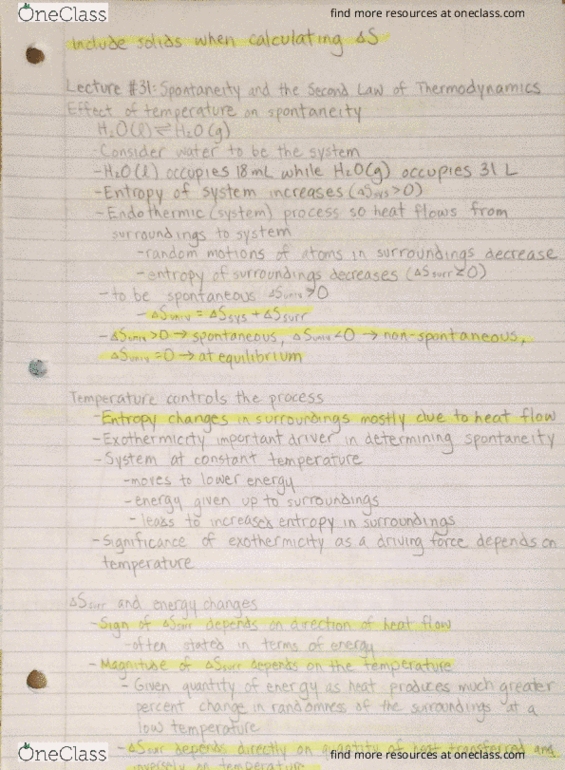 OneClass
find more resources at oneclass.com
Include solids when calculating ΔS
Lecture #31: Spontaneity and the Second Law of Thermodynamics
Effect of temperature on spontaneity
H₂O(l) ⇌ H₂O(g)
-Consider water to be the system
-H₂O(l) occupies 18 mL while H₂O(g) occupies 31 L
-Entropy of system increases (ΔSsys>0)
-Endothermic (system) process so heat flows from
surroundings to system
-random motions of atoms in surroundings decrease
-entropy of surroundings decreases (ΔSsurr<0)
-to be spontaneous ΔSuniv>0
-ΔSuniv = ΔSsys + ΔSsurr
-ΔSuniv>0 → spontaneous, ΔSuniv<0 → non-spontaneous,
ΔSuniv=0 → at equilibrium
Temperature controls the process
-Entropy changes in surroundings mostly due to heat flow
-Exothermicity important driver in determining spontaneity
-System at constant temperature
-moves to lower energy
-energy given up to surroundings
-leads to increased entropy in surroundings
-Significance of exothermicity as a driving force depends on
temperature
ΔSsurr and energy changes
-Sign of ΔSsurr depends on direction of heat flow
-often stated in terms of energy
-Magnitude of ΔSsurr depends on the temperature
-Given quantity of energy as heat produces much greater
percent change in randomness of the surroundings at a
low temperature
-ΔSsurr depends directly on quantity of heat transferred and
inversely on temperature
OneClass
find more resources at oneclass.com